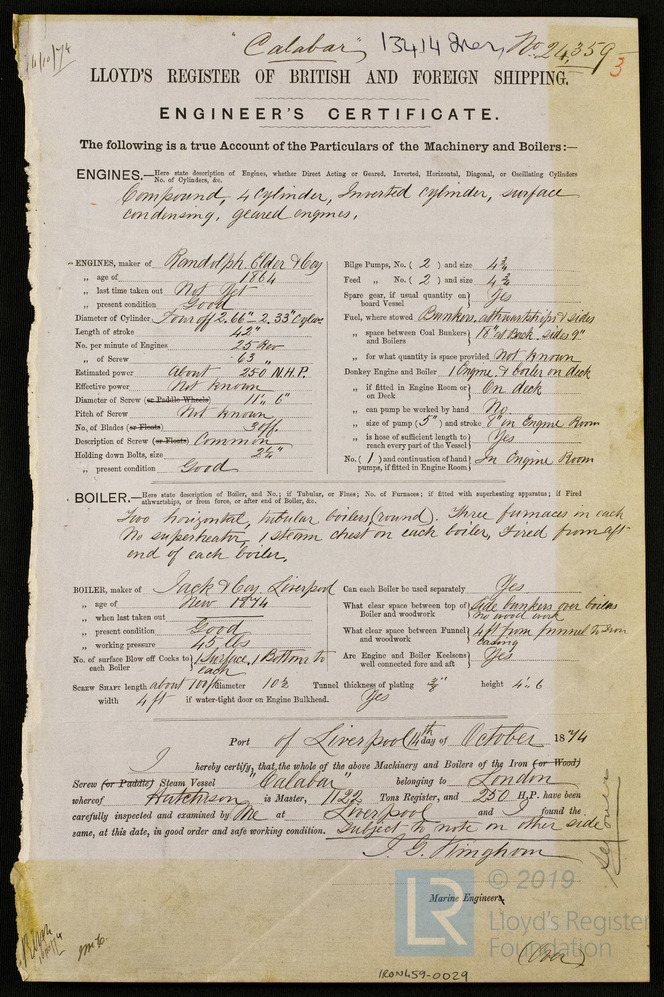 14/10/74
"Calabar" 13414 Iron No. 24,359
3
LLOYD'S REGISTER OF BRITISH AND FOREIGN SHIPPING.
ENGINEER'S CERTIFICATE.
The following is a true Account of the Particulars of the Machinery and Boilers:—
ENGINES.—Here state description of Engines, whether Direct Acting or Geared, Inverted, Horizontal, Diagonal, or Oscillating Cylinders
No. of Cylinders, &c.
Compound, 4 Cylinder, Inverted cylinder, surface
condensing, geared engines.
ENGINES, maker of Randolph. Elder & Coy
„ age of 1864
„ last time taken out Not Yet
„ present condition Good
Diameter of Cylinder Four off 2.66" 2.33" Cylrs
Length of stroke 42"
No. per minute of Engines 25 Rev
„ of Screw 63 „
Estimated power about 250 N.H.P.
Effective power Not known
Diameter of Screw (or Paddle Wheels) 11', 6"
Pitch of Screw Not known
No. of Blades (or Floats) 3 off.
Description of Screw (or Floats) Common
Holding down Bolts, size 2½"
„ present condition Good
Bilge Pumps, No. ( 2 ) and size 4¾
Feed „ No. ( 2 ) and size 4¾
Spare gear, if usual quantity on board Vessel } Yes
Fuel, where stowed Bunkers, athwartships & sides
„ space between Coal Bunkers and Boilers } 18" at Back. sides 9"
„ for what quantity is space provided Not known
Donkey Engine and Boiler 1 Engine & boiler on deck
„ if fitted in Engine Room or on Deck } On deck
„ can pump be worked by hand No
„ size of pump ( 5" ) and stroke 8" in Engine Room
„ is hose of sufficient length to reach every part of the Vessel } Yes
No. ( 1 ) and continuation of hand pumps, if fitted in Engine Room } In Engine Room
BOILER.—Here state description of Boiler, and No.; if Tubular, or Flues; No. of Furnaces; if fitted with superheating apparatus; if Fired
athwartships, or from force, or after end of Boiler, &c.
Two horizontal, tubular boilers (round). Three furnaces in each
No superheater, 1 steam chest on each boiler, Fired from aft
end of each boiler.
BOILER, maker of Jack & Coy. Liverpool
„ age of New 1874
„ when last taken out
„ present condition Good
„ working pressure 45 lbs
No. of surface Blow off Cocks to each Boiler } 1 Surface, 1 Bottom to each
Can each Boiler be used separately Yes
What clear space between top of Boiler and woodwork } Side bunkers over boilers no wood work
What clear space between Funnel and woodwork } 4 ft from funnel to iron casing
Are Engine and Boiler Keelsons well connected fore and aft } Yes
SCREW SHAFT length about 100 ft diameter 10½ Tunnel thickness of plating height 4', 6
width 4 ft if water-tight door on Engine Bulkhead. Yes
Port of Liverpool 14th day of October 1874
I hereby certify, that the whole of the above Machinery and Boilers of the Iron (or Wood)
Screw (or Paddle) Steam Vessel "Calabar" belonging to London
whereof Hutchison is Master, 1122 Tons Register, and 250 H.P. have been
carefully inspected and examined by Me at Liverpool and I found the
same, at this date, in good order and safe working condition. Subject to note on other side
Marine Engineers.
(Over)
IRON459-0029
LR
© 2019
Lloyd's Register
Foundation